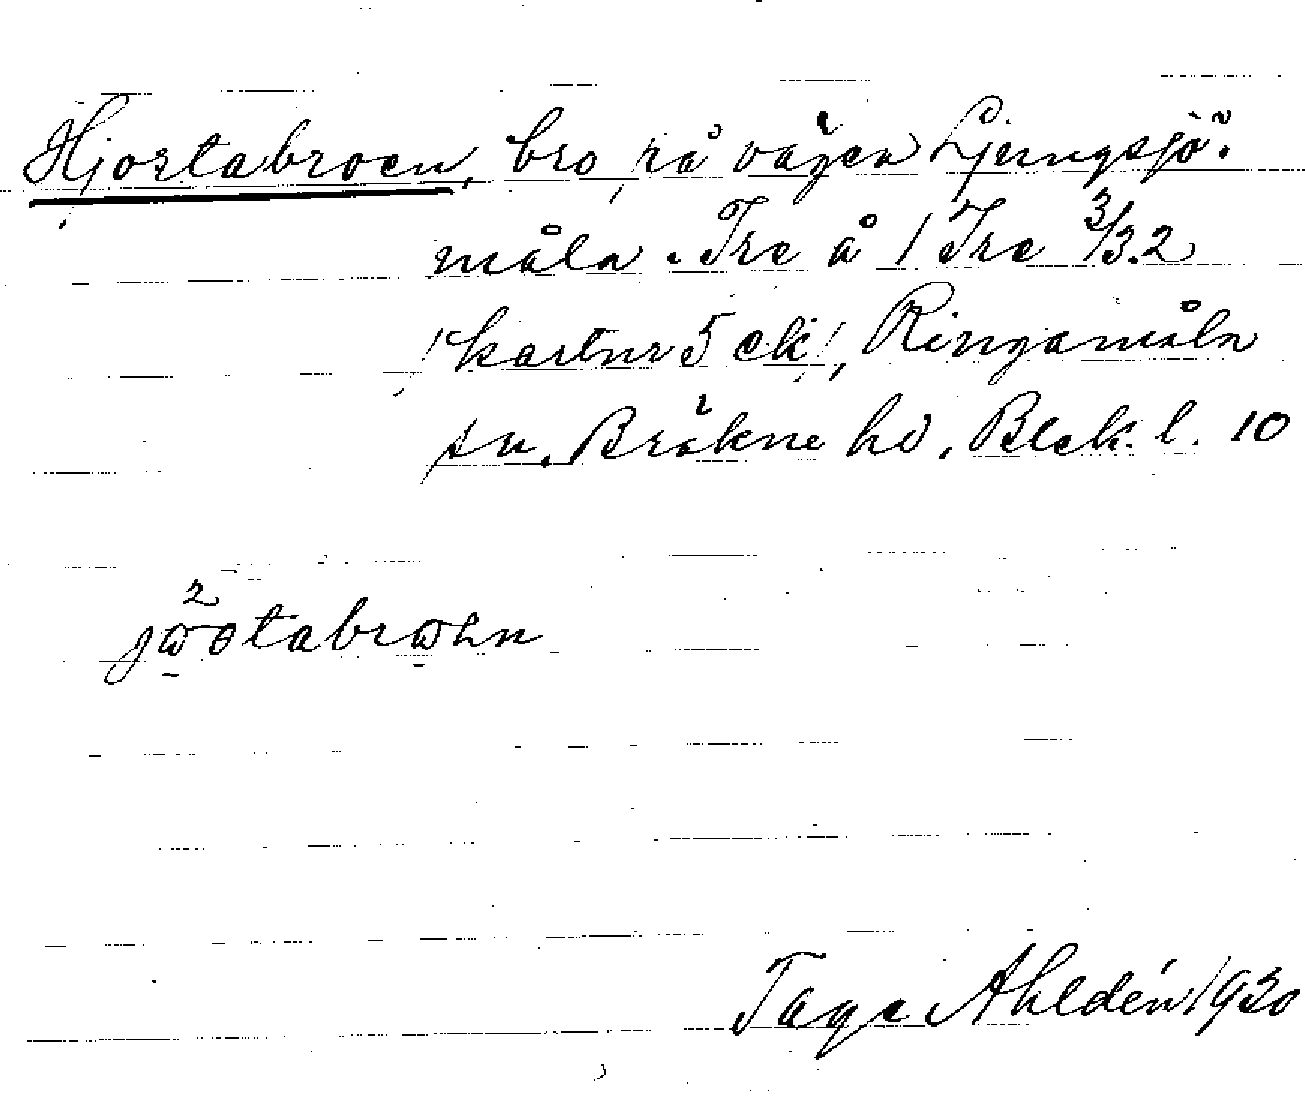 Hjortabroen, bro på vägen Ljungsjö-
måla - Tre å / Tre 3/3.2
/ kartnr 5 ek /, Ringamåla
sn. Bräkne hd, Blek. l. 10
Tage Ahldén 1930